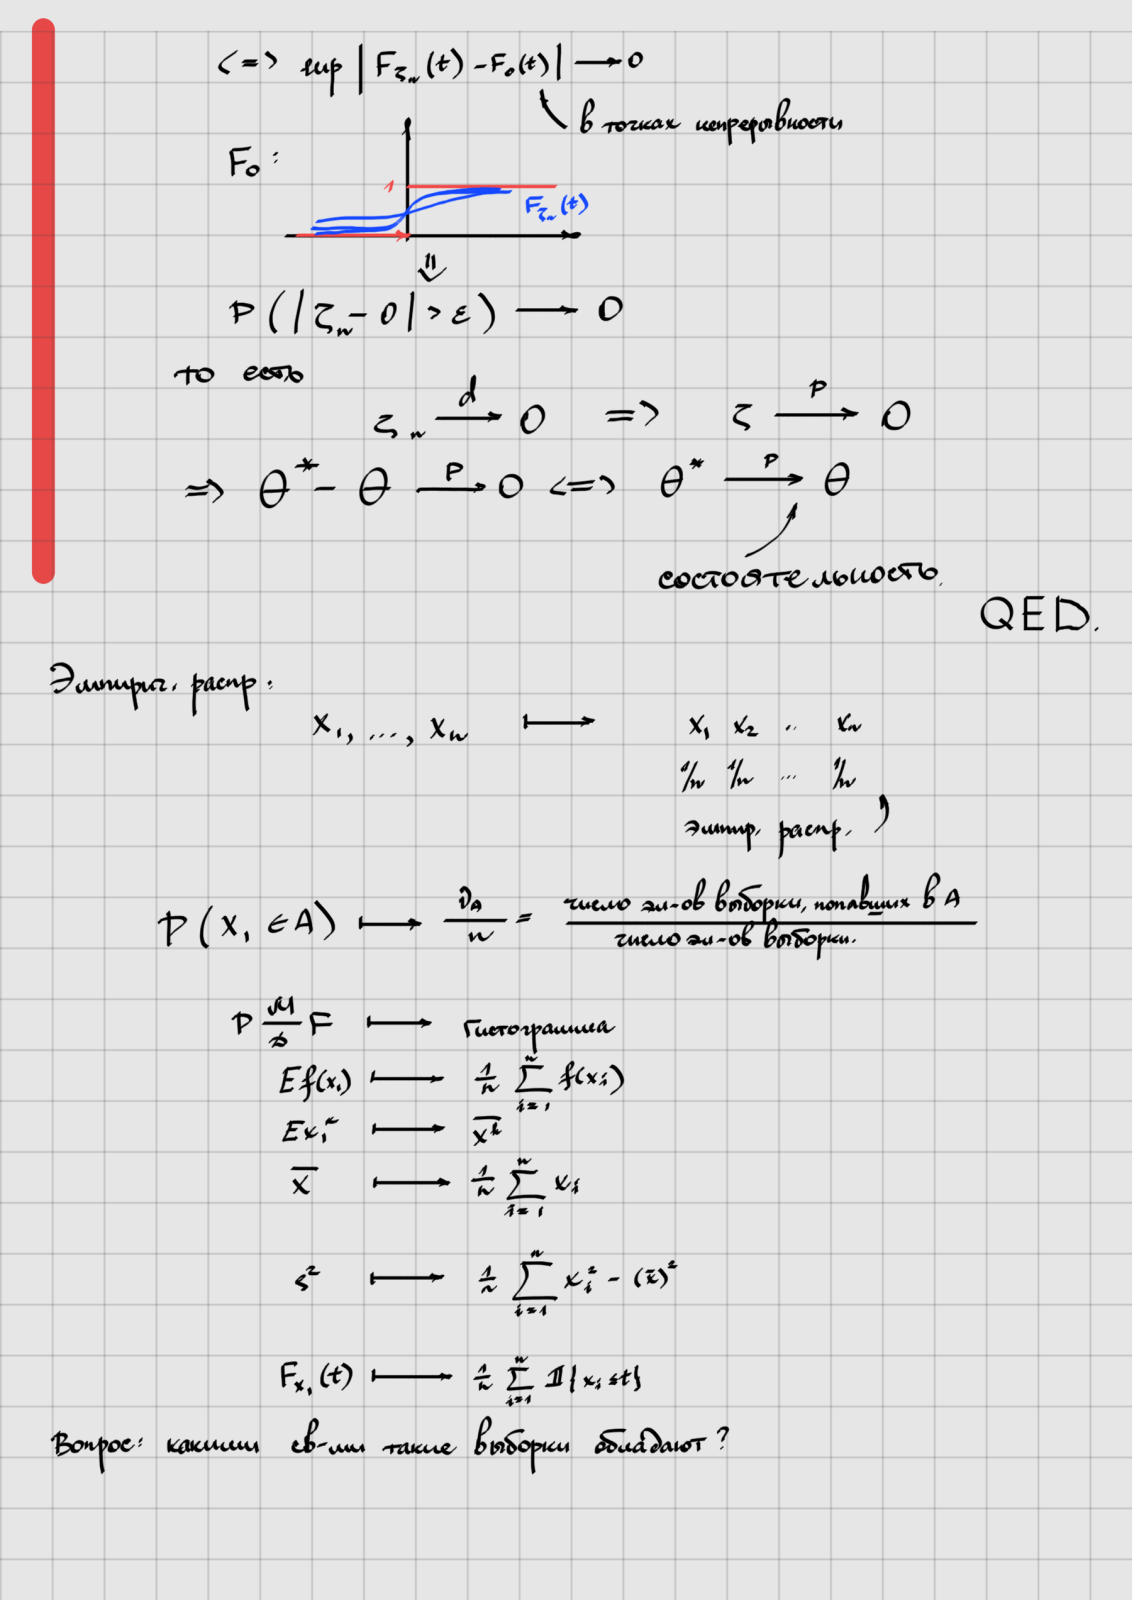 <=> sup | F_{ζ_n}(t) - F_0(t) | → 0
в точках непрерывности
F_0 :
1
F_{ζ_n}(t)
⇓
P ( | ζ_n - 0 | > ε ) → 0
то есть
ζ_n →^d 0 => ζ →^P 0
=> θ* - θ →^P 0 <=> θ* →^P θ
состоятельность.
QED.
Эмпирич. распр.:
X_1, ..., X_n ↦ X_1 X_2 .. X_n
1/n 1/n ... 1/n
эмпир. распр.
P ( X_1 ∈ A ) ↦ ν_A / n = число эл-ов выборки, попавших в A / число эл-ов выборки.
F ↦ Гистограмма
E f(x_1) ↦ 1/n ∑_{i=1}^n f(x_i)
E x_1^k ↦ \overline{x^k}
\overline{x} ↦ 1/n ∑_{i=1}^n x_i
s^2 ↦ 1/n ∑_{i=1}^n x_i^2 - (\overline{x})^2
F_{x_1}(t) ↦ 1/n ∑_{i=1}^n 𝟙{x_i ≤ t}
Вопрос: какими св-ми такие выборки обладают?